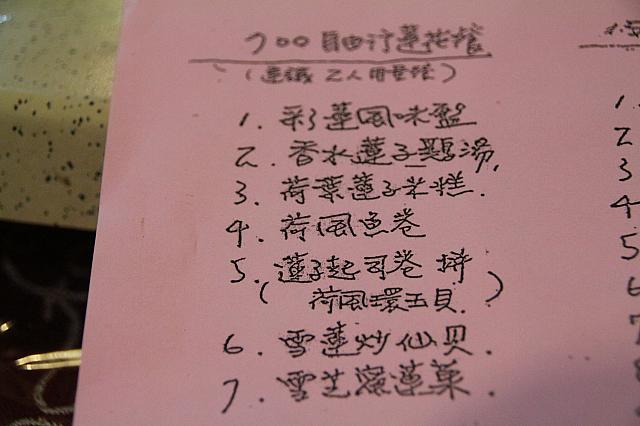 700自由行蓮花餐
(建議 2人用套餐)
1. 彩蓮風味盤
2. 香水蓮子雞湯,
3. 荷葉蓮子米糕.
4. 荷風魚卷
5. 蓮子起司卷 拼
(荷風環玉貝.)
6. 雪蓮炒仙贝.
7. 雪芝蓮菓.
1.
2
3
4
5
6
7